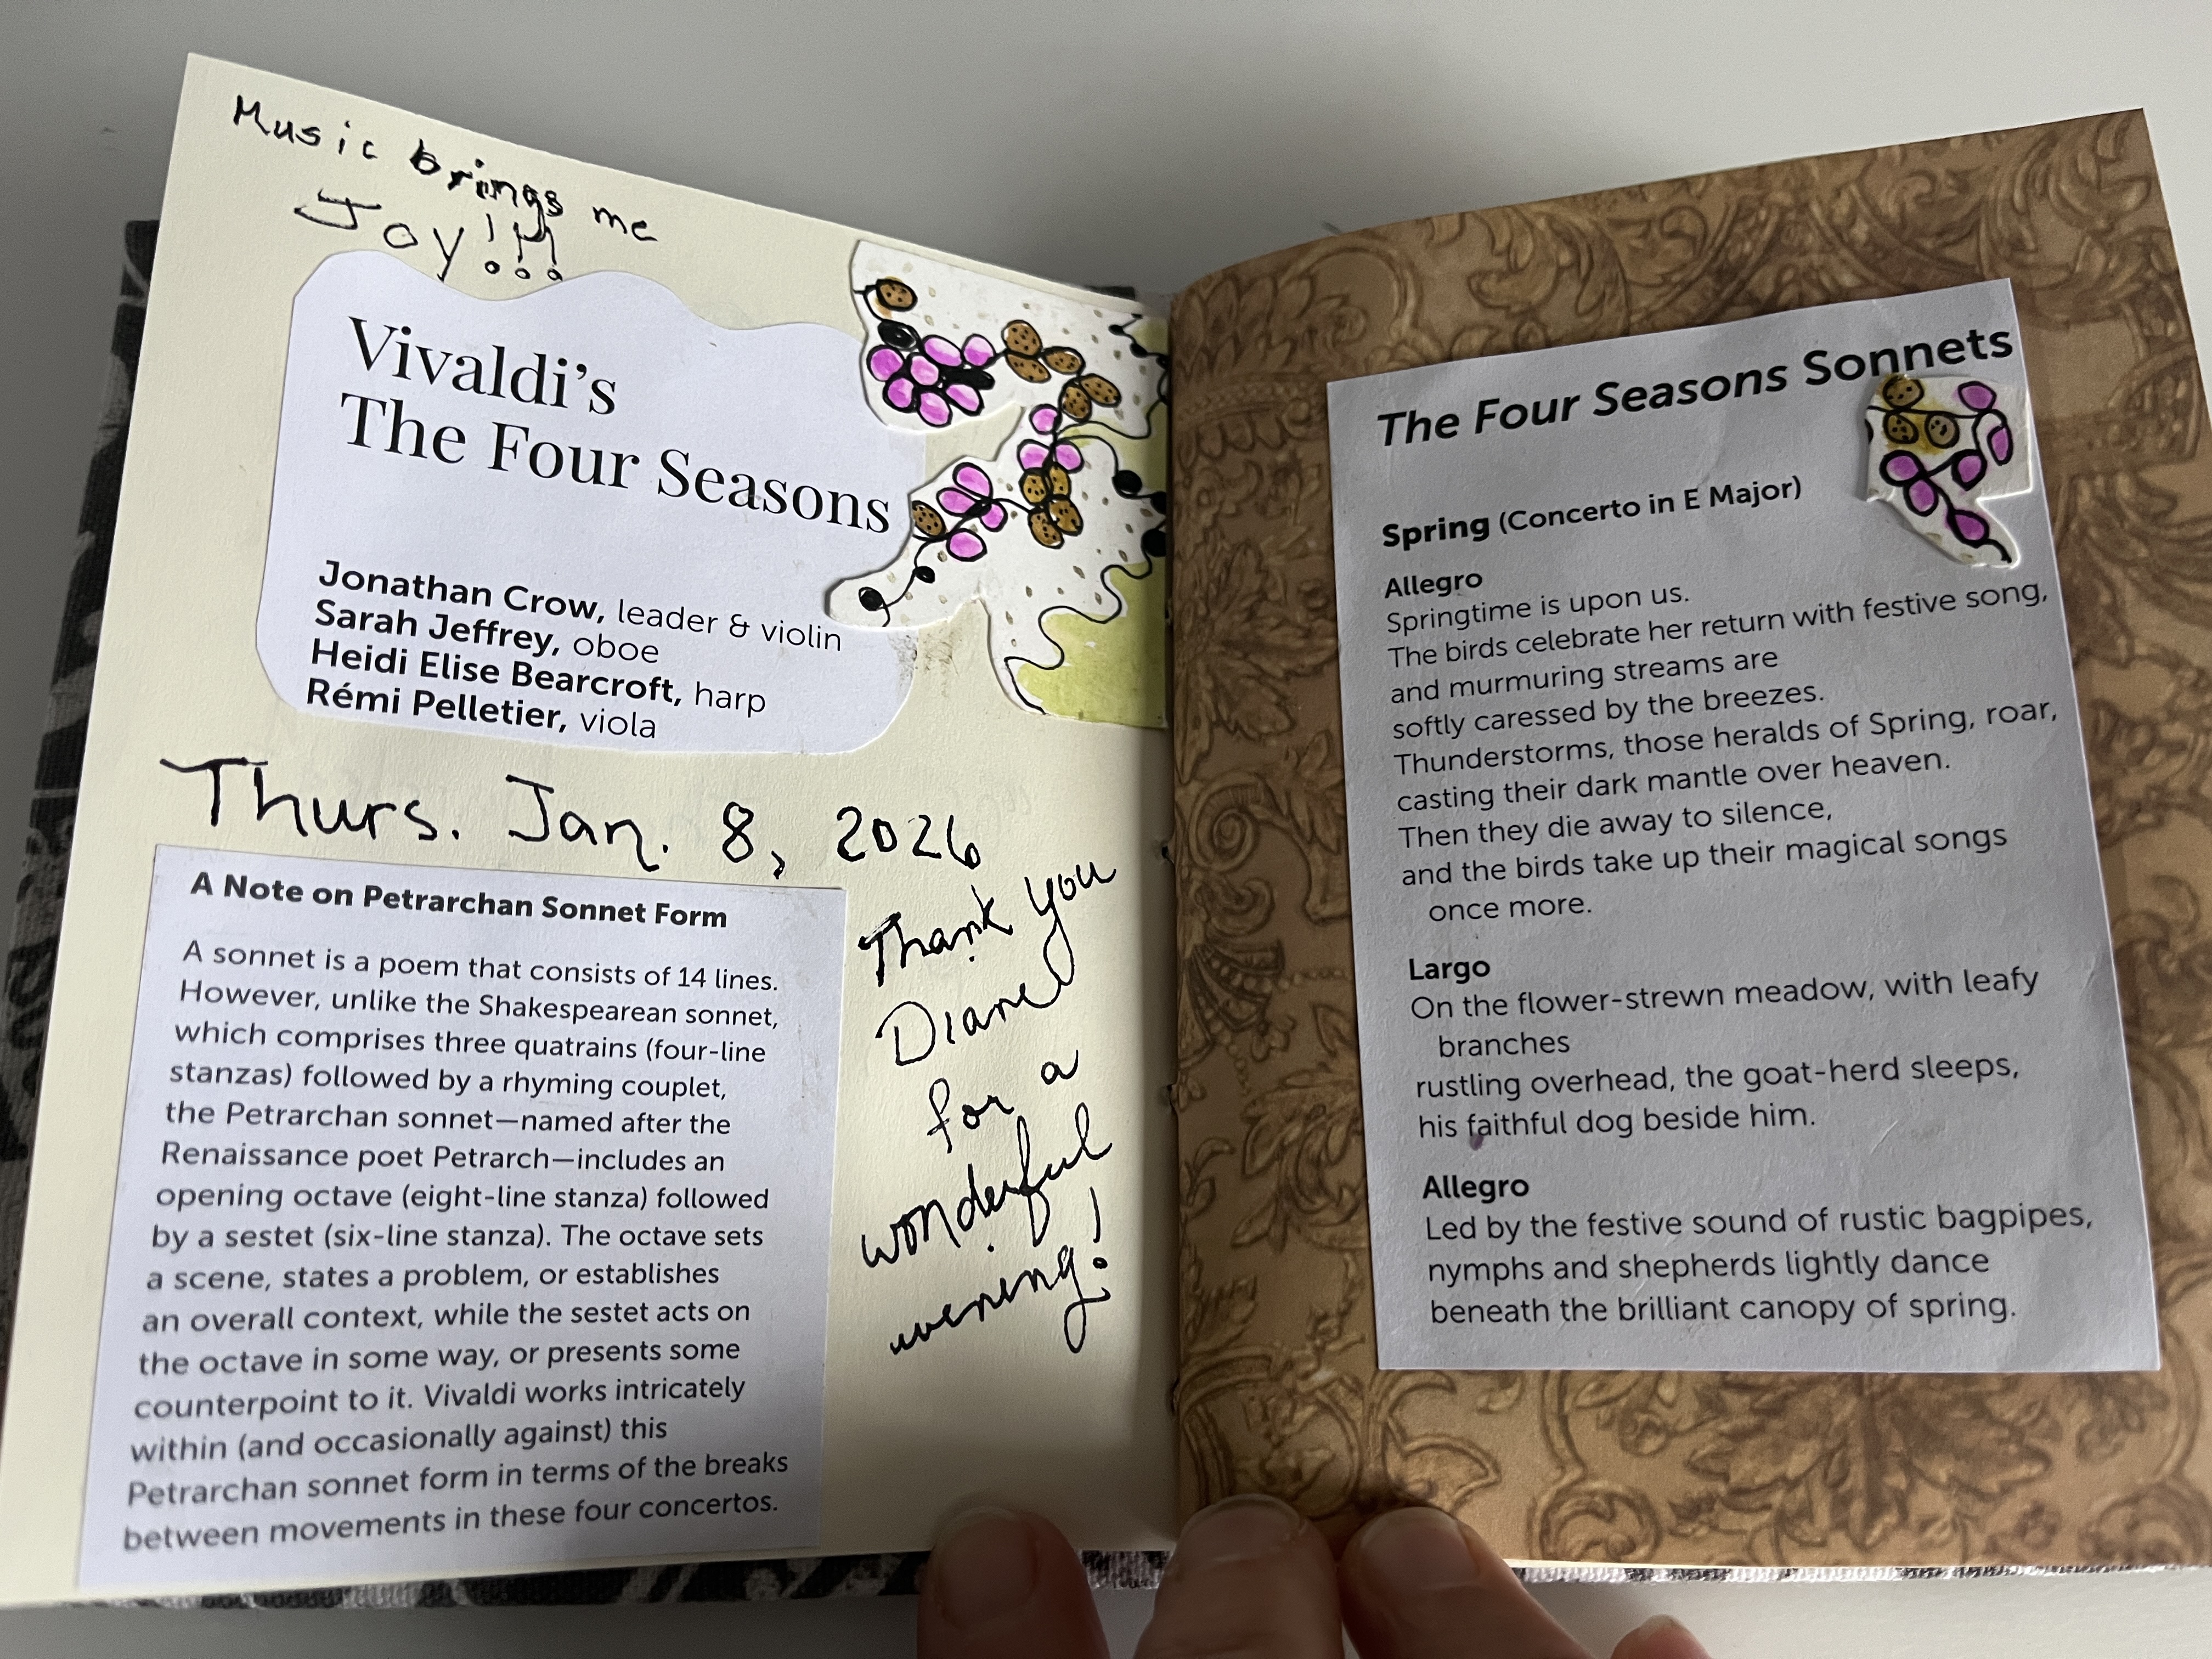 Music brings me
Joy!!!
Vivaldi's
The Four Seasons
Jonathan Crow, leader & violin
Sarah Jeffrey, oboe
Heidi Elise Bearcroft, harp
Rémi Pelletier, viola
Thurs. Jan. 8, 2026
A Note on Petrarchan Sonnet Form
A sonnet is a poem that consists of 14 lines.
However, unlike the Shakespearean sonnet,
which comprises three quatrains (four-line
stanzas) followed by a rhyming couplet,
the Petrarchan sonnet—named after the
Renaissance poet Petrarch—includes an
opening octave (eight-line stanza) followed
by a sestet (six-line stanza). The octave sets
a scene, states a problem, or establishes
an overall context, while the sestet acts on
the octave in some way, or presents some
counterpoint to it. Vivaldi works intricately
within (and occasionally against) this
Petrarchan sonnet form in terms of the breaks
between movements in these four concertos.
Thank you
Diane
for a
wonderful
evening!
The Four Seasons Sonnets
Spring (Concerto in E Major)
Allegro
Springtime is upon us.
The birds celebrate her return with festive song,
and murmuring streams are
softly caressed by the breezes.
Thunderstorms, those heralds of Spring, roar,
casting their dark mantle over heaven.
Then they die away to silence,
and the birds take up their magical songs
once more.
Largo
On the flower-strewn meadow, with leafy
branches
rustling overhead, the goat-herd sleeps,
his faithful dog beside him.
Allegro
Led by the festive sound of rustic bagpipes,
nymphs and shepherds lightly dance
beneath the brilliant canopy of spring.